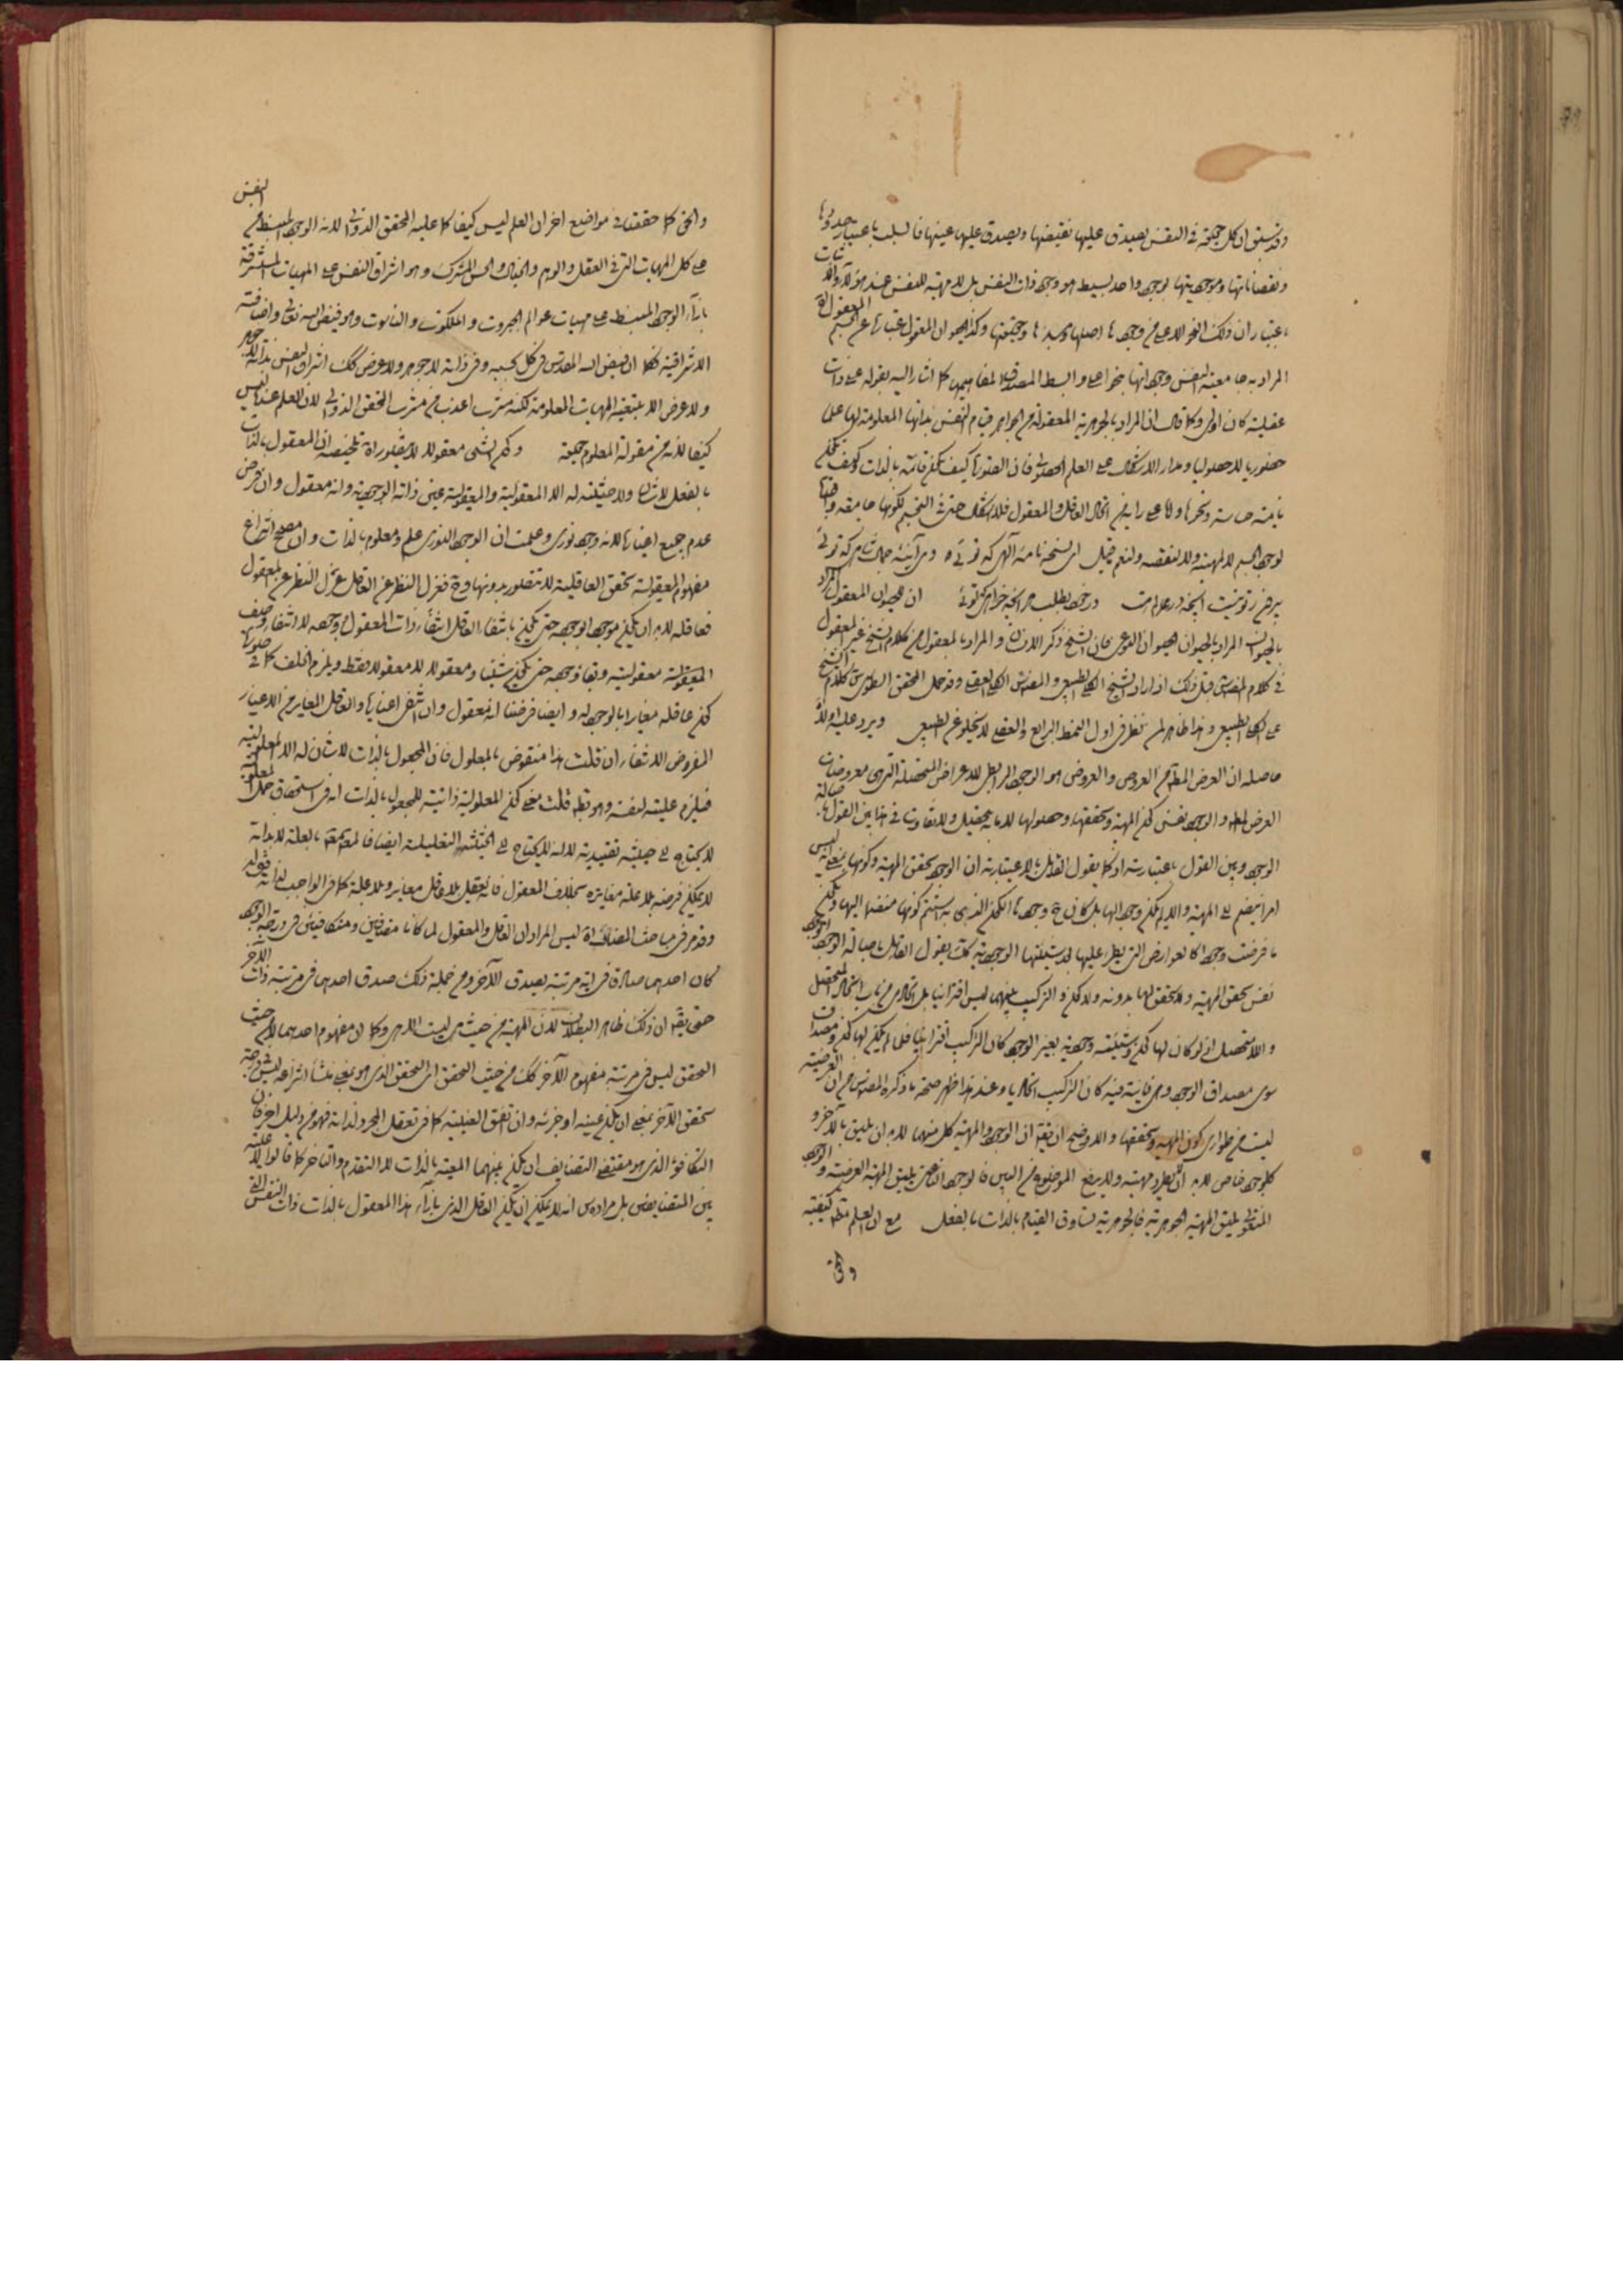 وقد سبق ان كل حيثية في النفس يصدق عليها نقيضها ويصدق عليها عينها فالسلب باعتبار حدودها
ونقصاناتها وموجوديتها بوجود واحد بسيط هو وجود ذات النفس بل لا مهية للنفس عند هؤلاء واثبات
باعتبار ان ذلك النحو الاعلى من وجودها اصلها ومبدئها وحقيقتها وكذا الحيوان المعقول
المراد به جامعية النفس وجوداتها بنحو اعلى وابسط المصداق لمفاهيمها كما اشار اليه بقوله على ذات
عقلية كان اولى وكما قال ان المراد بالجوهرية المعقولة من الجواهر قيام النفس بذاتها المعلومة لها علما
حضوريا لا حصوليا ومدار الاشكال على العلم الحصولي فان الصورة كيف تكون قائمة بالذات وكيف تكون
نامية حساسة ونحوها واما على رأينا من اتحاد العاقل والمعقول فلا اشكال حتى في التحيز لكونها جامعة واقفها
لوجود الجسم لا لمهيته ولا لنقصه ولنعم ما قيل اى نسخه نامه الهى كه توئى وى آينه جمال شاهى كه توئى
بيرون ز تو نيست آنچه در عالم هست در خود بطلب هر آنچه خواهى كه توئى ان الحيوان المعقول المراد
بالحيوان المراد بالحيوان الحيوان النوعى فان الشيخ ذكر الانسان والمراد بالمعقول من كلام الشيخ غير المعقول
في كلام المصنف قبل ذلك اذ اراد الشيخ الكلى الطبيعى والمصنف الكلى العقلى وقد حمل المحقق الطوسى كلام الشيخ
على الكلى الطبيعى وهذا ظاهر لمن نظر في اول النمط الرابع والعقلى لا يخلو عن الطبيعى ويرد عليه اولا
حاصله ان العرض المطلق من العروض والعروض هو الوجود الرابطى للاعراض المتحصلة التى هى معروضات
العرض المطلق والوجود نفس كون المهية وتحققها وحصولها لا ما به يتحصل ولا تفاوت في هذا بين القول باصالة
الوجود وبين القول باعتباريته اذ كما يقول القائل بالاعتبارية ان الوجود تحقق المهية وكونها بمعنى انه ليس
امرا ينضم الى المهية والا لم يكن وجودا لها بل كان ح وجودها الكون الذى به يستتم كونها منضما اليها ويكون
ما فرضت وجودا كالعوارض التى يطرء عليها بعد شيئيتها الوجودية كذلك يقول القائل باصالة الوجود الوجود
نفس تحقق المهية ولا تحقق لها بدونه ولا كون والتركيب بينهما ليس اقترانيا بل اتحادى من باب اتحاد المتحصل
واللامتحصل اذ لو كان لها كون وشيئية وجودية بغير الوجود كان التركيب اقترانيا فلما لم يكن لها كون ومصداق
سوى مصداق الوجود وهى فانية فيه كان التركيب اتحاديا وعند هذا ظهر صحة ما ذكره المصنف من ان العرضية
ليست من طوارى كون المهية وتحققها والاوضح ان يقال ان الوجود والمهية كل منهما لا بد ان يليق بالآخر و
كل وجود خاص لا بد ان يطرد مهية ولا يدفع الموضوع من البين فالوجود الناعتى يليق المهية العرضية والوجود
المستقل يليق المهية الجوهرية فالجوهرية تساوق القيام بالذات بالفعل مع ان العلم مطلقا كيفية
والحق
والحق كما حققنا في مواضع اخر ان العلم ليس كيفا كما عليه المحقق الدوانى لانه الوجود المنبسط من النفس
على كل المهيات التى في العقل والوهم والخيال والحس المشترك وهو اشراق النفس على المهيات المستشرقة
بازاء الوجود المنبسط على مهيات عوالم الجبروت والملكوت والناسوت وهو فيض الله تعالى واضافته
الاشراقية فكما ان فيض الله المقدس في كل بحسبه وفي ذاته لا جوهر ولا عرض كذلك اشراق النفس بذاته لا جوهر
ولا عرض الا بتبعية المهيات المعلومة لكنه مشرب اعذب من مشرب المحقق الدوانى لان العلم عنده ليس
كيفا لانه من مقولة المعلوم حقيقة وكون الشىء معقولا لا يتصور اه تلخيصه ان المعقول بالذات
بالفعل لا شان ولا حيثية له الا المعقولية والمعقولية عين ذاته الوجودية وانه معقول وان فرض
عدم جميع اغياره لانه وجود نورى وعلمت ان الوجود النورى علم ومعلوم بالذات وان مصحح انتزاع
مفهوم المعقولية تحقق العاقلية لا تتصور بدونها وح فعزل النظر عن العاقل عزل النظر عن المعقول
فعاقله لا بد ان يكون موجودا بوجوده حتى يكون بانتفاء العاقل انتفاء ذات المعقول ووجوده لا انتفاء وصف
المعقولية معقوليته وبقاء وجوده حتى يكون شيئا ومعقولا لا معقولا فقط ويلزم الخلف كما في صورة
كون عاقله مغايرا بالوجود له وايضا فرضنا انه معقول وان انتفى اغياره والعاقل المغاير من الاغيار
المفروض الانتفاء ان قلت هذا منقوض بالمعلول فان المجعول بالذات لا شان له الا المعلولية
فيلزم عليته لنفسه وهو بط قلت معنى كون المعلولية ذاتية للمجعول بالذات انه في استحقاق حمل المعلولية
لا يحتاج الى حيثية تقييدية لا انه لا يحتاج الى الحيثية التعليلية ايضا فالمعلول متحقق بالعلة لا بذاته
لا يمكن فرضه بلا علة مغايرة بخلاف المعقول فانه يعقل بلا عاقل مغاير وبلا علة كما في الواجب لذاته تعالى
وقد مر في مباحث المضاف اه ليس المراد ان العاقل والمعقول لما كانا متضايفين ومتكافئين في درجة الوجود
كان احدهما صادقا في اية مرتبة يصدق الآخر ومن جملة ذلك صدق احدهما في مرتبة ذات الآخر
حتى يقال ان ذلك ظاهر البطلان لان المهية من حيث هى ليست الا هى وكما ان مفهوم احدهما لا من حيث
التحقق ليس في مرتبة مفهوم الآخر كذلك من حيث التحقق اى التحقق الذى هو بمعنى منشأ انتزاعه ليس في درجة
تحقق الآخر بمعنى ان يكون عينه او جزئه وان اتفق العينية كما في تعقل المجرد لذاته فهو من دليل اخر فان
التكافؤ الذى هو مقتضى التضايف ان يكون بينهما المعية بالذات لا التقدم والتاخر كما قالوا لا علية
بين المتضايفين بل مراده س انه لا يمكن ان يكون العاقل الذى بازاء هذا المعقول بالذات ذات النفس التى